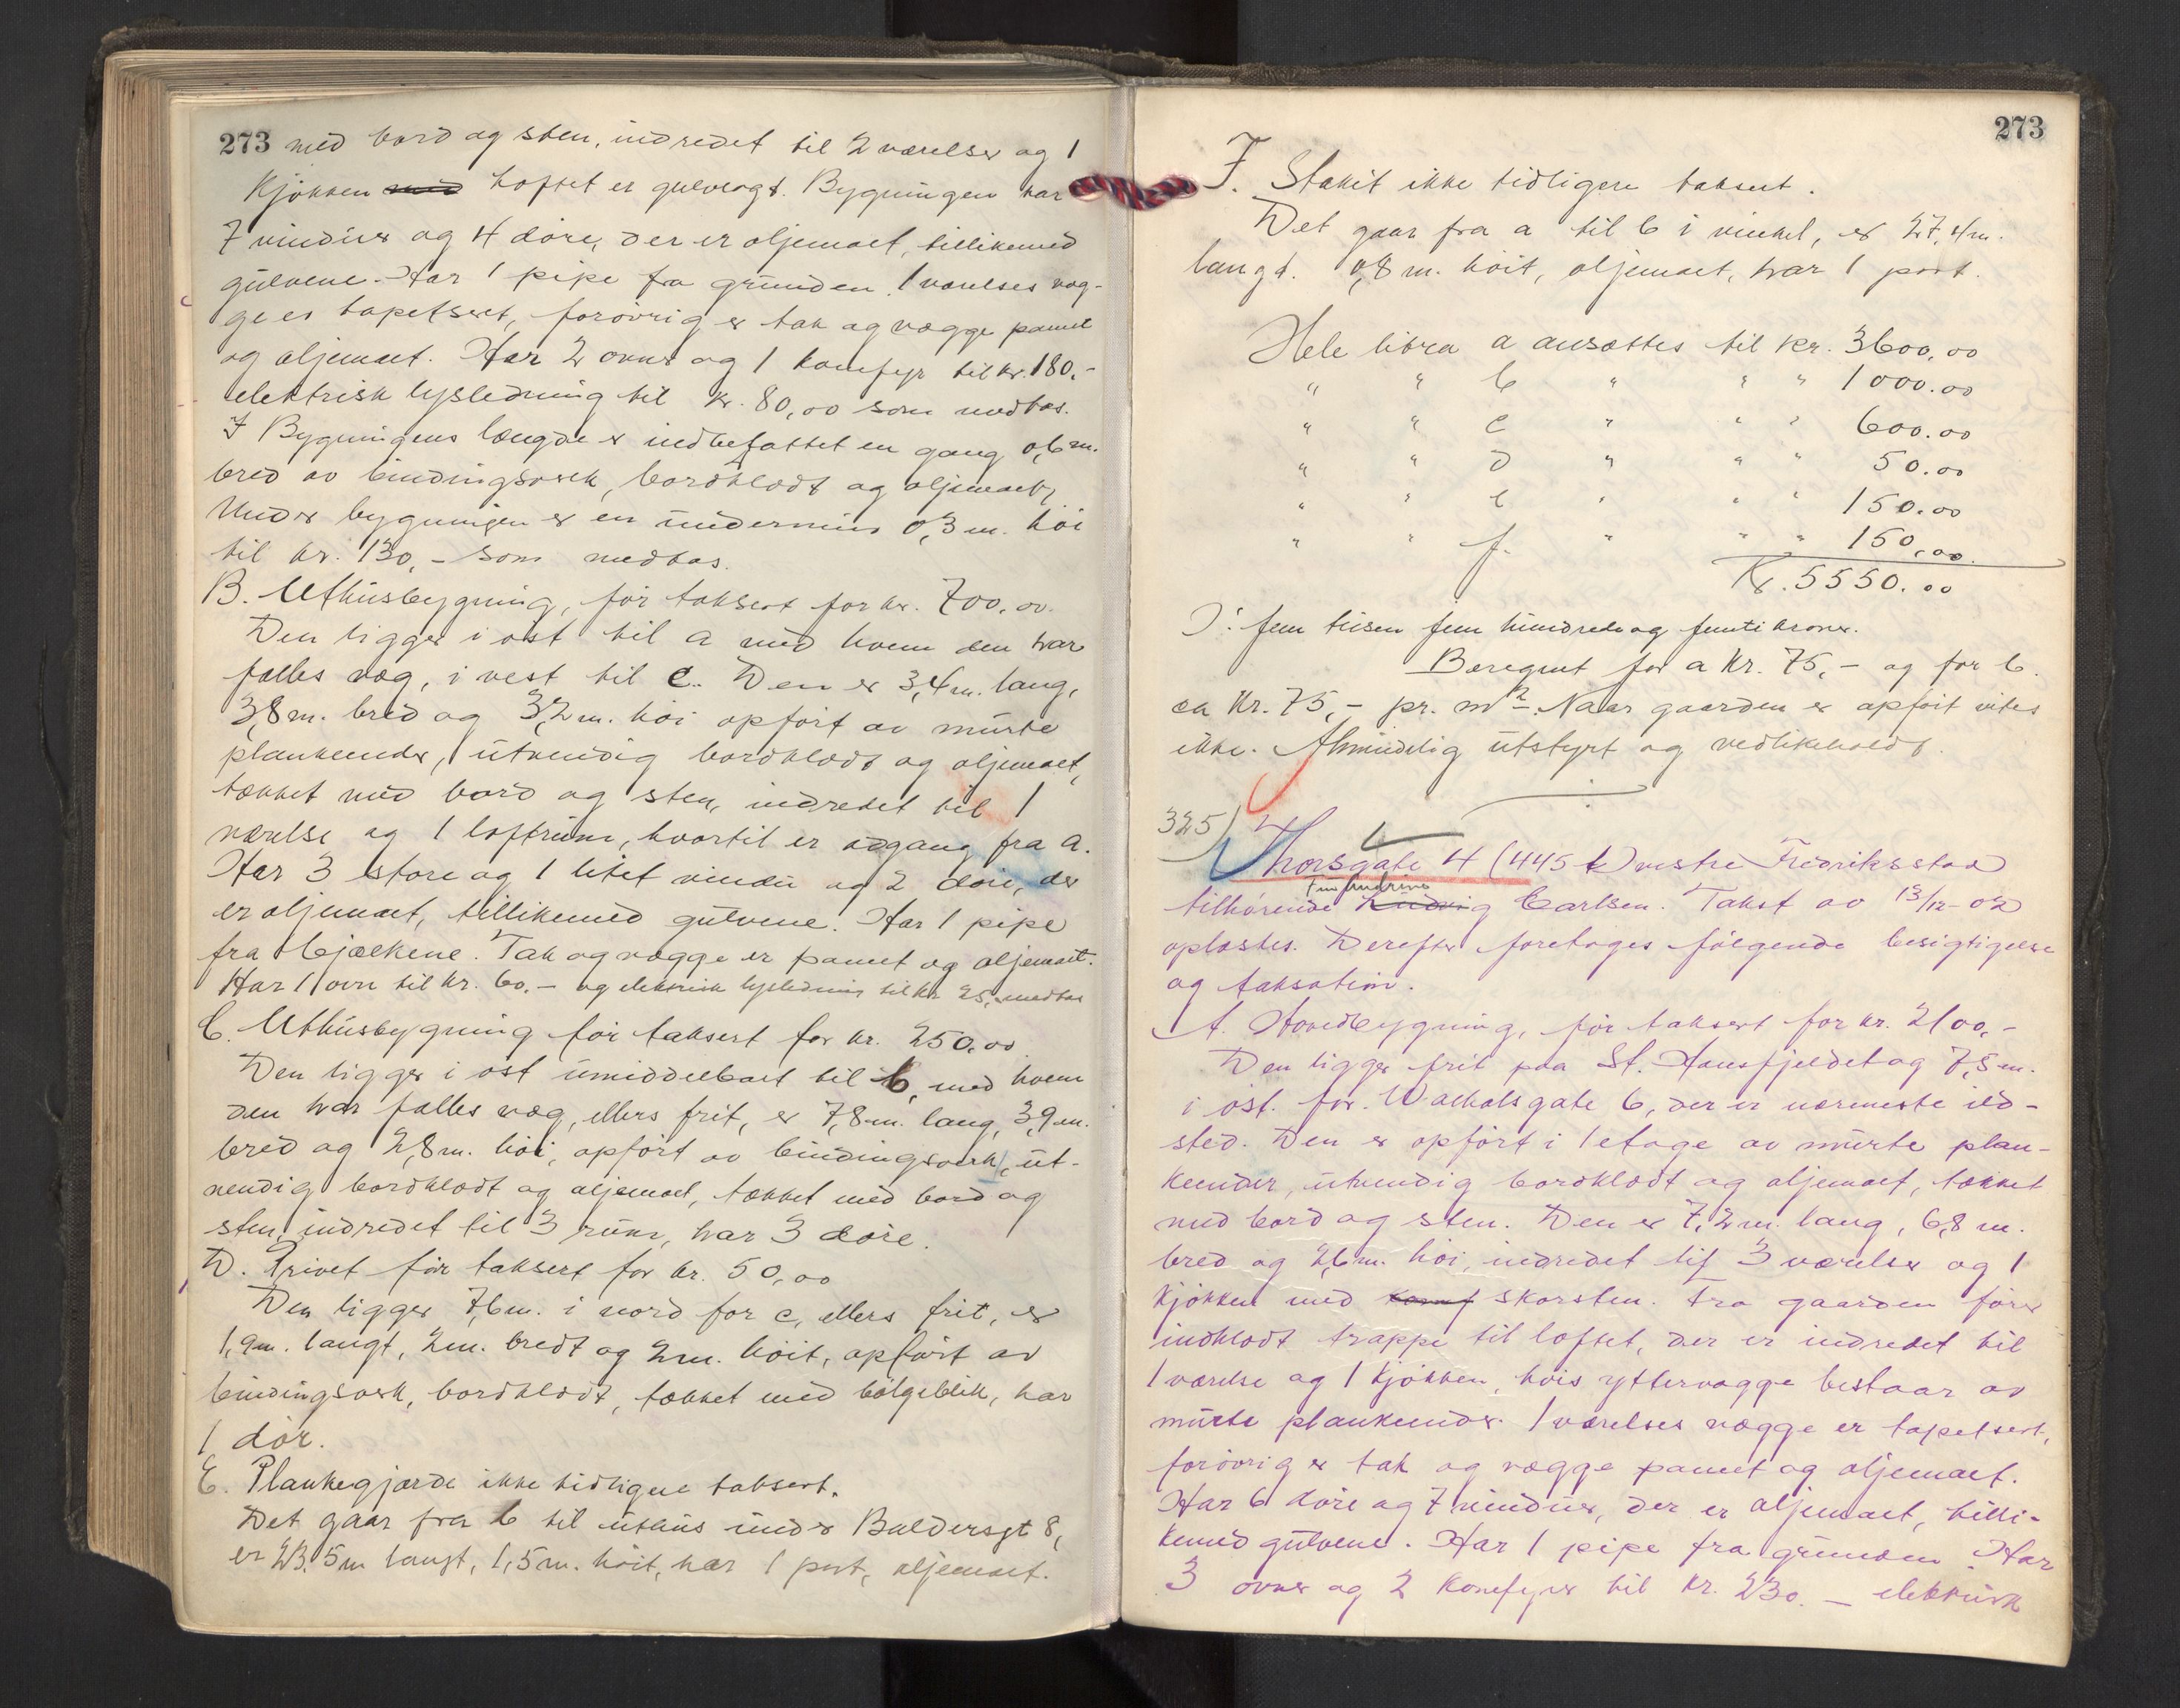 273 med bord og sten, indredet til 2 værelser og 1
Kjøkken med Loftet er gulvlagt. Bygningen har
7 vinduer og 4 døre, der er oljemalt, tillikemed
gulvene. Har 1 pipe fra grunden. 1 værelses væg-
ge er tapetseret, forøvrig er tak og vægge panelt
og oljemalt. Har 2 ovner og 1 komfyr til kr. 180,-
elektrisk lysledning til kr. 80,00 som medtas.
I Bygningens længde er indbefattet en gang 0,6 m.
bred av bindingsverk, bordklædt og oljemalt,
Under bygningen er en undermur 0,3 m. høi
til kr. 130,- som medtas.
B. Uthusbygning, før taksert for kr. 700,00.
Den ligger i øst til a med hvem den har
fælles væg, i vest til C. Den er 3,4 m. lang,
3,8 m. bred og 3,2 m. høi opført av murte
plankeender, utvendig bordklædt og oljemalt,
tækket med bord og sten, indredet til 1
værelse og 1 loftrum, hvortil er adgang fra a.
Har 3 store og 1 litet vindu og 2 døre, der
er oljemalt, tillikemed gulvene. Har 1 pipe
fra bjælkene. Tak og vægge er panelt og oljemalt.
Har 1 ovn til kr. 60.- og elektrisk lysledning til kr 25,- medtas
C. Uthusbygning før taksert for kr. 250,00
Den ligger i øst umiddelbart til b, med hvem
den har fælles væg, ellers frit, er 7,8 m. lang, 3,9 m.
bred og 2,8 m. høi, opført av bindingsverk, ut-
vendig bordklædt og oljemalt, tækket med bord og
sten, indredet til 3 rum, har 3 døre.
D. Privet før taksert for kr. 50,00
Den ligger 7,6 m. i nord for c, ellers frit, er
1,9 m. langt, 2 m. bredt og 2 m. høit, opført av
bindingsverk, bordklædt, tækket med bølgeblik, har
1 dør.
E. Plankegjærde ikke tidligere taksert.
Det gaar fra b til uthus under Baldersgt 8,
er 23,5 m langt, 1,5 m. høit, har 1 port, oljemalt.
273
F. Stakit ikke tidligere taksert.
Det gaar fra a til b i vinkel, er 27,4 m.
langt. 0,8 m. høit, oljemalt, har 1 port.
Hele litra a ansættes til kr. 3600,00
" " b " " " 1000.00
" " c " " " 600.00
" " d " " " 50.00
" " e " " " 150.00
" " f. " " " 150,00
Kr. 5550.00
I: fem tusen fem hundrede og femti kroner.
Beregnet for a kr. 75,- og for b.
ca kr. 75,- pr. m². Naar gaarden er opført vites
ikke. Almindelig utstyrt og vedlikeholdt.
325)
Thorsgate 4 (445 k) vestre Fredriksstad
Fru Andrine
tilhørende Ludvig Carlsen. Takst av 13/12-02
oplæstes. Derefter foretages følgende besigtigelse
og taksation.
A. Hovedbygning, før taksert for kr. 2100,-
Den ligger frit paa St. Hansfjeldet og 7,5 m.
i øst for Walhalsgate 6, der er nærmeste ild-
sted. Den er opført i 1 etage av murte plan-
keender, utvendig bordklædt og oljemalt, tækket
med bord og sten. Den er 7,2 m. lang, 6,8 m.
bred og 2,6 m. høi, indredet til 3 værelser og 1
kjøkken med komf skorsten. Fra gaarden fører
indklædt trappe til loftet, der er indredet til
1 værelse og 1 kjøkken, hvis yttervægge bestaar av
murte plankeender. 1 værelses vægge er tapetsert,
forøvrig er tak og vægge panelt og oljemalt.
Har 6 døre og 7 vinduer, der er oljemalt, tilli-
kemed gulvene. Har 1 pipe fra grunden. Har
3 ovner og 2 komfyrer til kr. 230.- elektrisk